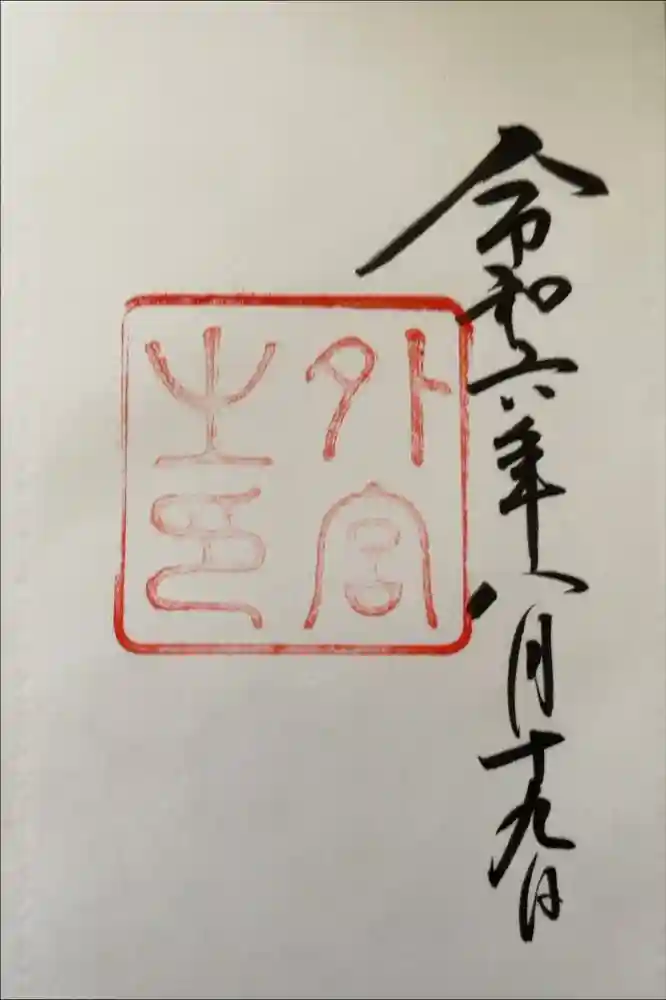 令和六年八月十九日
外宮
之印